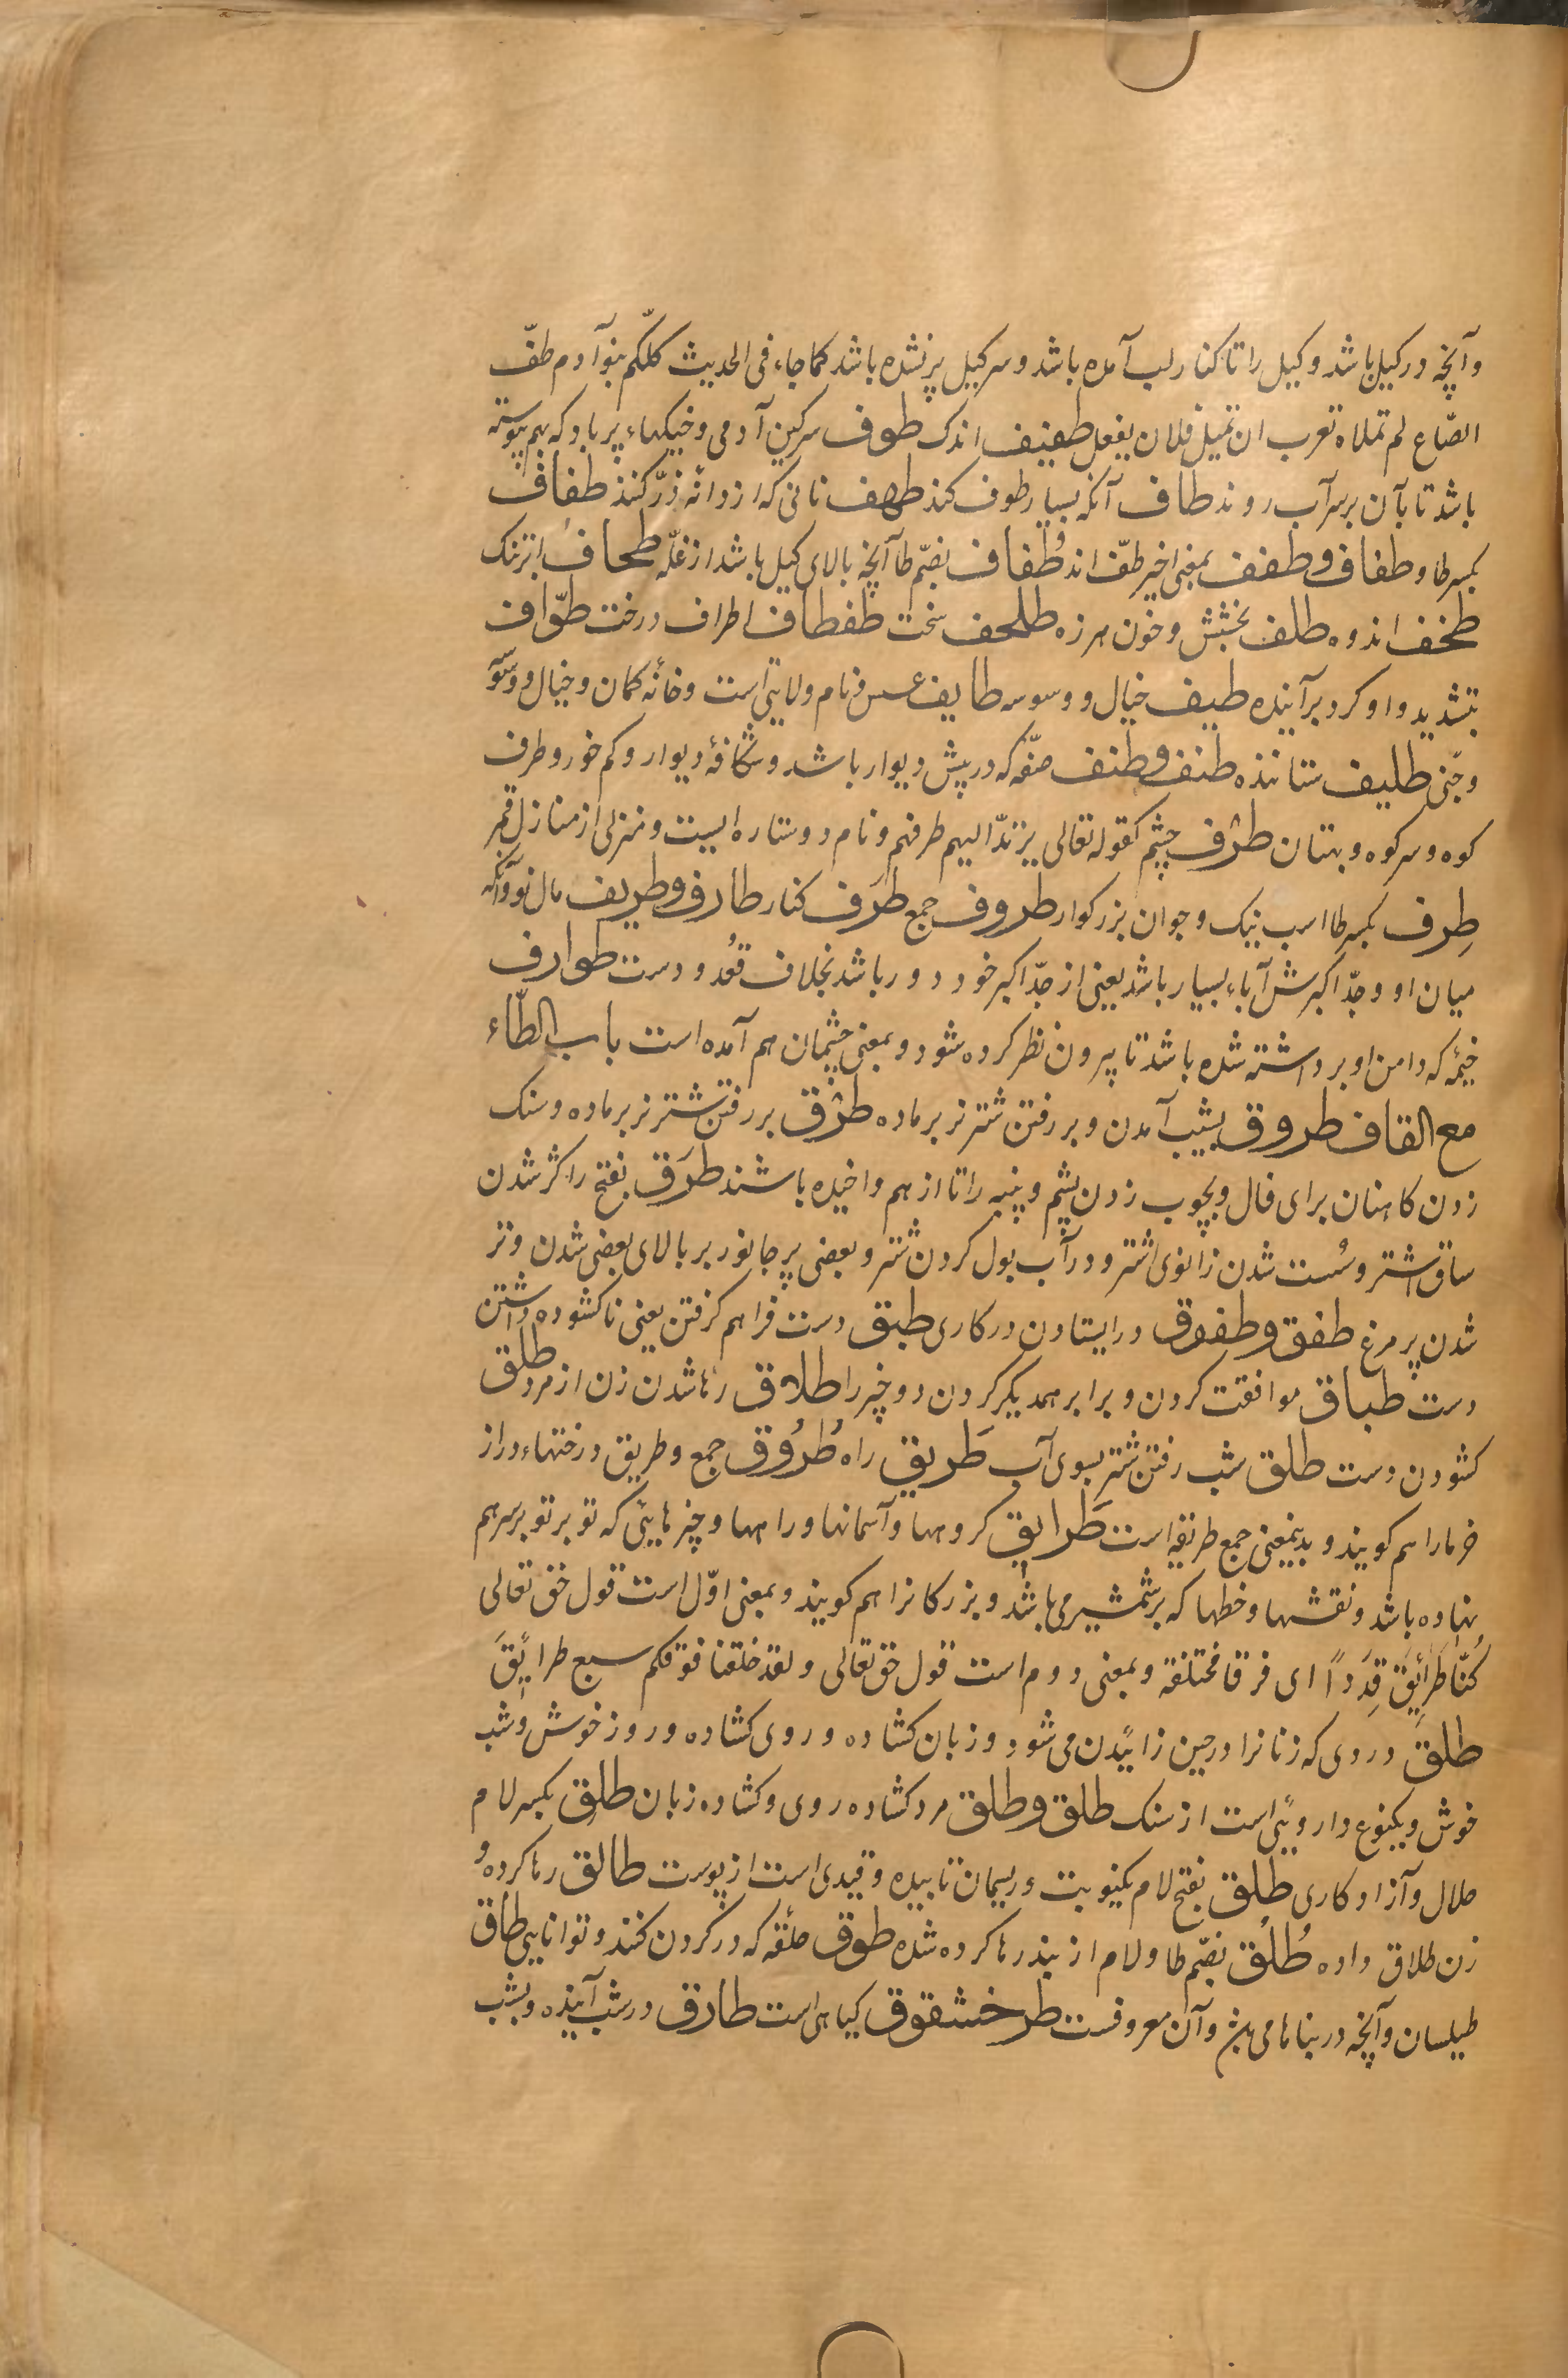 وآنچه در کیل باشد و کیل را تا کنار لب آمده باشد و سر کیل پر نشده باشد کما جاء فی الحدیث کلّکم بنو آدم طفّ
الصّاع لم تملاه تعرب ان تمیل فلان یفعل طفیف اندک طوف سرکین آدمی و خیکهاء پر باد که بهم پیوسته
باشد تا بآن بر سر آب روند طاف آنکه بسیار طوف کند طهف نانی که از دانه ذرّ کنند طفاف
بکسر طا و طفاف و طفف بمعنی اخیر طفّ اند و طُفاف بضمّ طا آنچه بالای کیل باشد از غلّه طحاف ابر تنک
طخف اندوه طلف بخشش و خون هرزه طلحف سخت طفطاف اطراف درخت طوّاف
بتشدید واو کرد برآینده طیف خیال و وسوسه طایف عسس و نام ولایتی است و خانهٔ کمان و خیال و وسوسه
و جنّی طلیف ستاننده طنف و طنف صفّه که در پیش دیوار باشد و شکافهٔ دیوار و کم خور و طرف
کوه و سر کوه و بهتان طرْف چشم کقوله تعالی یرتدّ الیهم طرفهم و نام دو ستاره ایست و منزلی از منازل قمر
طِرف بکسر طا اسب نیک و جوان بزرکوار طروف جمع طرَف کنار طارف و طریف مال نو و آنکه
میان او و جدّ اکبرش آباء بسیار باشد یعنی از جدّ اکبر خود دور باشد بخلاف قعُدد و دست طوارف
خیمه که دامن او برداشته شده باشد تا بیرون نظر کرده شود و بمعنی چشمان هم آمده است باب الطّاء
مع القاف طروق بشب آمدن و بر رفتن شتر نر بر ماده طرْق بر رفتن شتر نر بر ماده و سنک
زدن کاهنان برای فال و بچوب زدن پشم و پنبه را تا از هم واخیده باشند طرَق بفتح را کژ شدن
ساق اشتر و سُست شدن زانوی اشتر و در آب بول کردن شتر و بعضی پر جانور بر بالای بعضی شدن و تر
شدن پر مرغ طفق و طفوق در ایستادن در کاری طبق دست فراهم کرفتن یعنی ناکشوده داشتن
دست طباق موافقت کردن و برابر همدیکر کردن دو چیز را طلاق رها شدن زن از مرد طلق
کشودن دست طلق شب رفتن شتر بسوی آب طَریق راه طُرُوق جمع و طریق درختهاء دراز
خرما را هم کویند و بدینمعنی جمع طریقه است طَرایق کروهها و آسمانها و راهها و چیزهایی که تو بر تو بر سر هم
نهاده باشد و نقشها و خطها که بر شمشیر می باشد و بزرکانرا هم کویند و بمعنی اوّل است قول حق تعالی
کُنّا طَرائِقَ قِدَداً ای فرقا مختلفة و بمعنی دوم است قول حق تعالی و لقد خلقنا فوقکم سبع طرائِقَ
طلق دردی که زنانرا در حین زائیدن می شود و زبان کشاده و روی کشاده و روز خوش و شب
خوش و یکنوع داروئی است از سنک طلق و طلق مرد کشاده روی و کشاده زبان طلِق بکسر لام
حلال و آزاد کاری طلَق بفتح لام یکنوبت و ریسمان تابیده و قیدی است از پوست طالق رها کرده و
زن طلاق داده طُلُق بضمّ طا و لام از بند رها کرده شده طوق حلقه که در کردن کنند و توانایی طاق
طیلسان و آنچه در بناها می باشد و آن معروفست طرخشقوق کیاهی است طارق در شب آینده و بشب